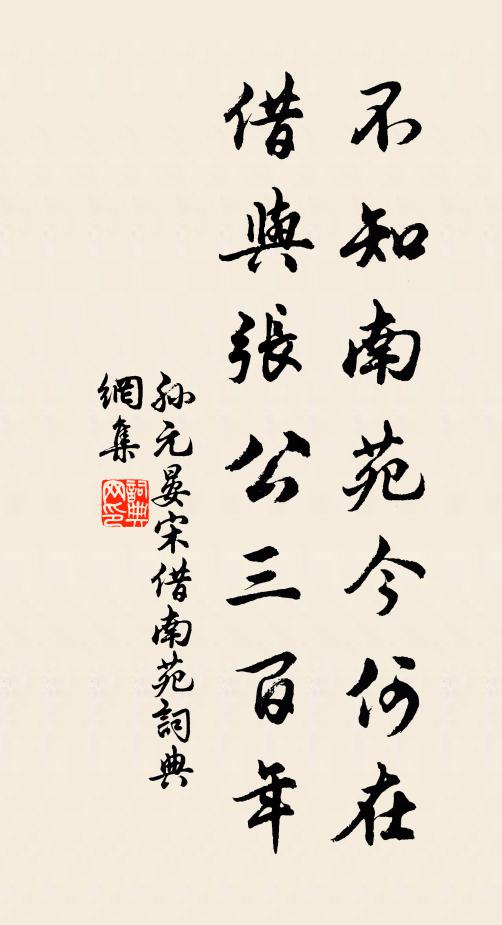 不知南苑今何在
借與張公三百年
孫元晏宋借南苑詞典
網集
詞典
网印